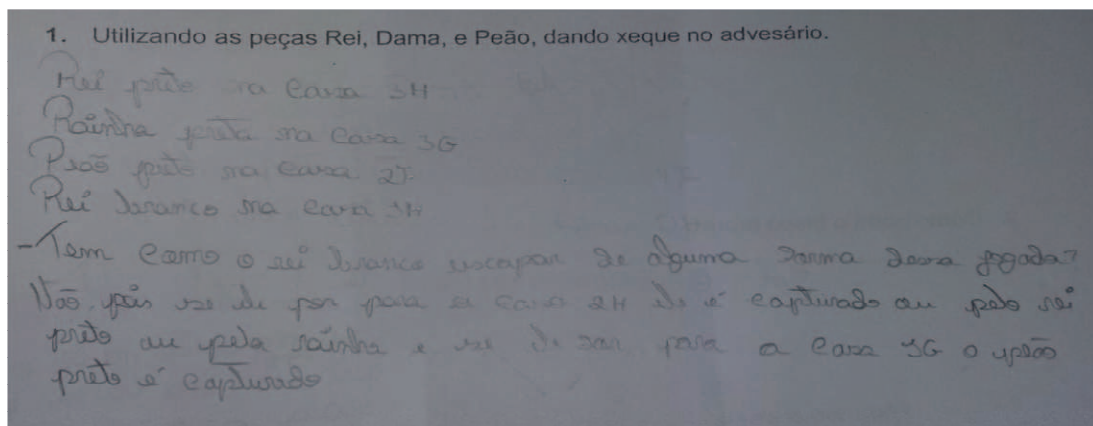 1. Utilizando as peças Rei, Dama, e Peão, dando xeque no advesário.
Rei prêto na Casa 3H
Rainha preta na Casa 3G
Peaõ prêto na Casa
Rei branco na Casa
-Tem Como o rei branco escapar de alguma forma dessa jogada?
Não, pois se ele for para a Casa 2H ele é capturado ou pelo rei
preto ou pela rainha e se ele for para a Casa o peão
preto é capturado